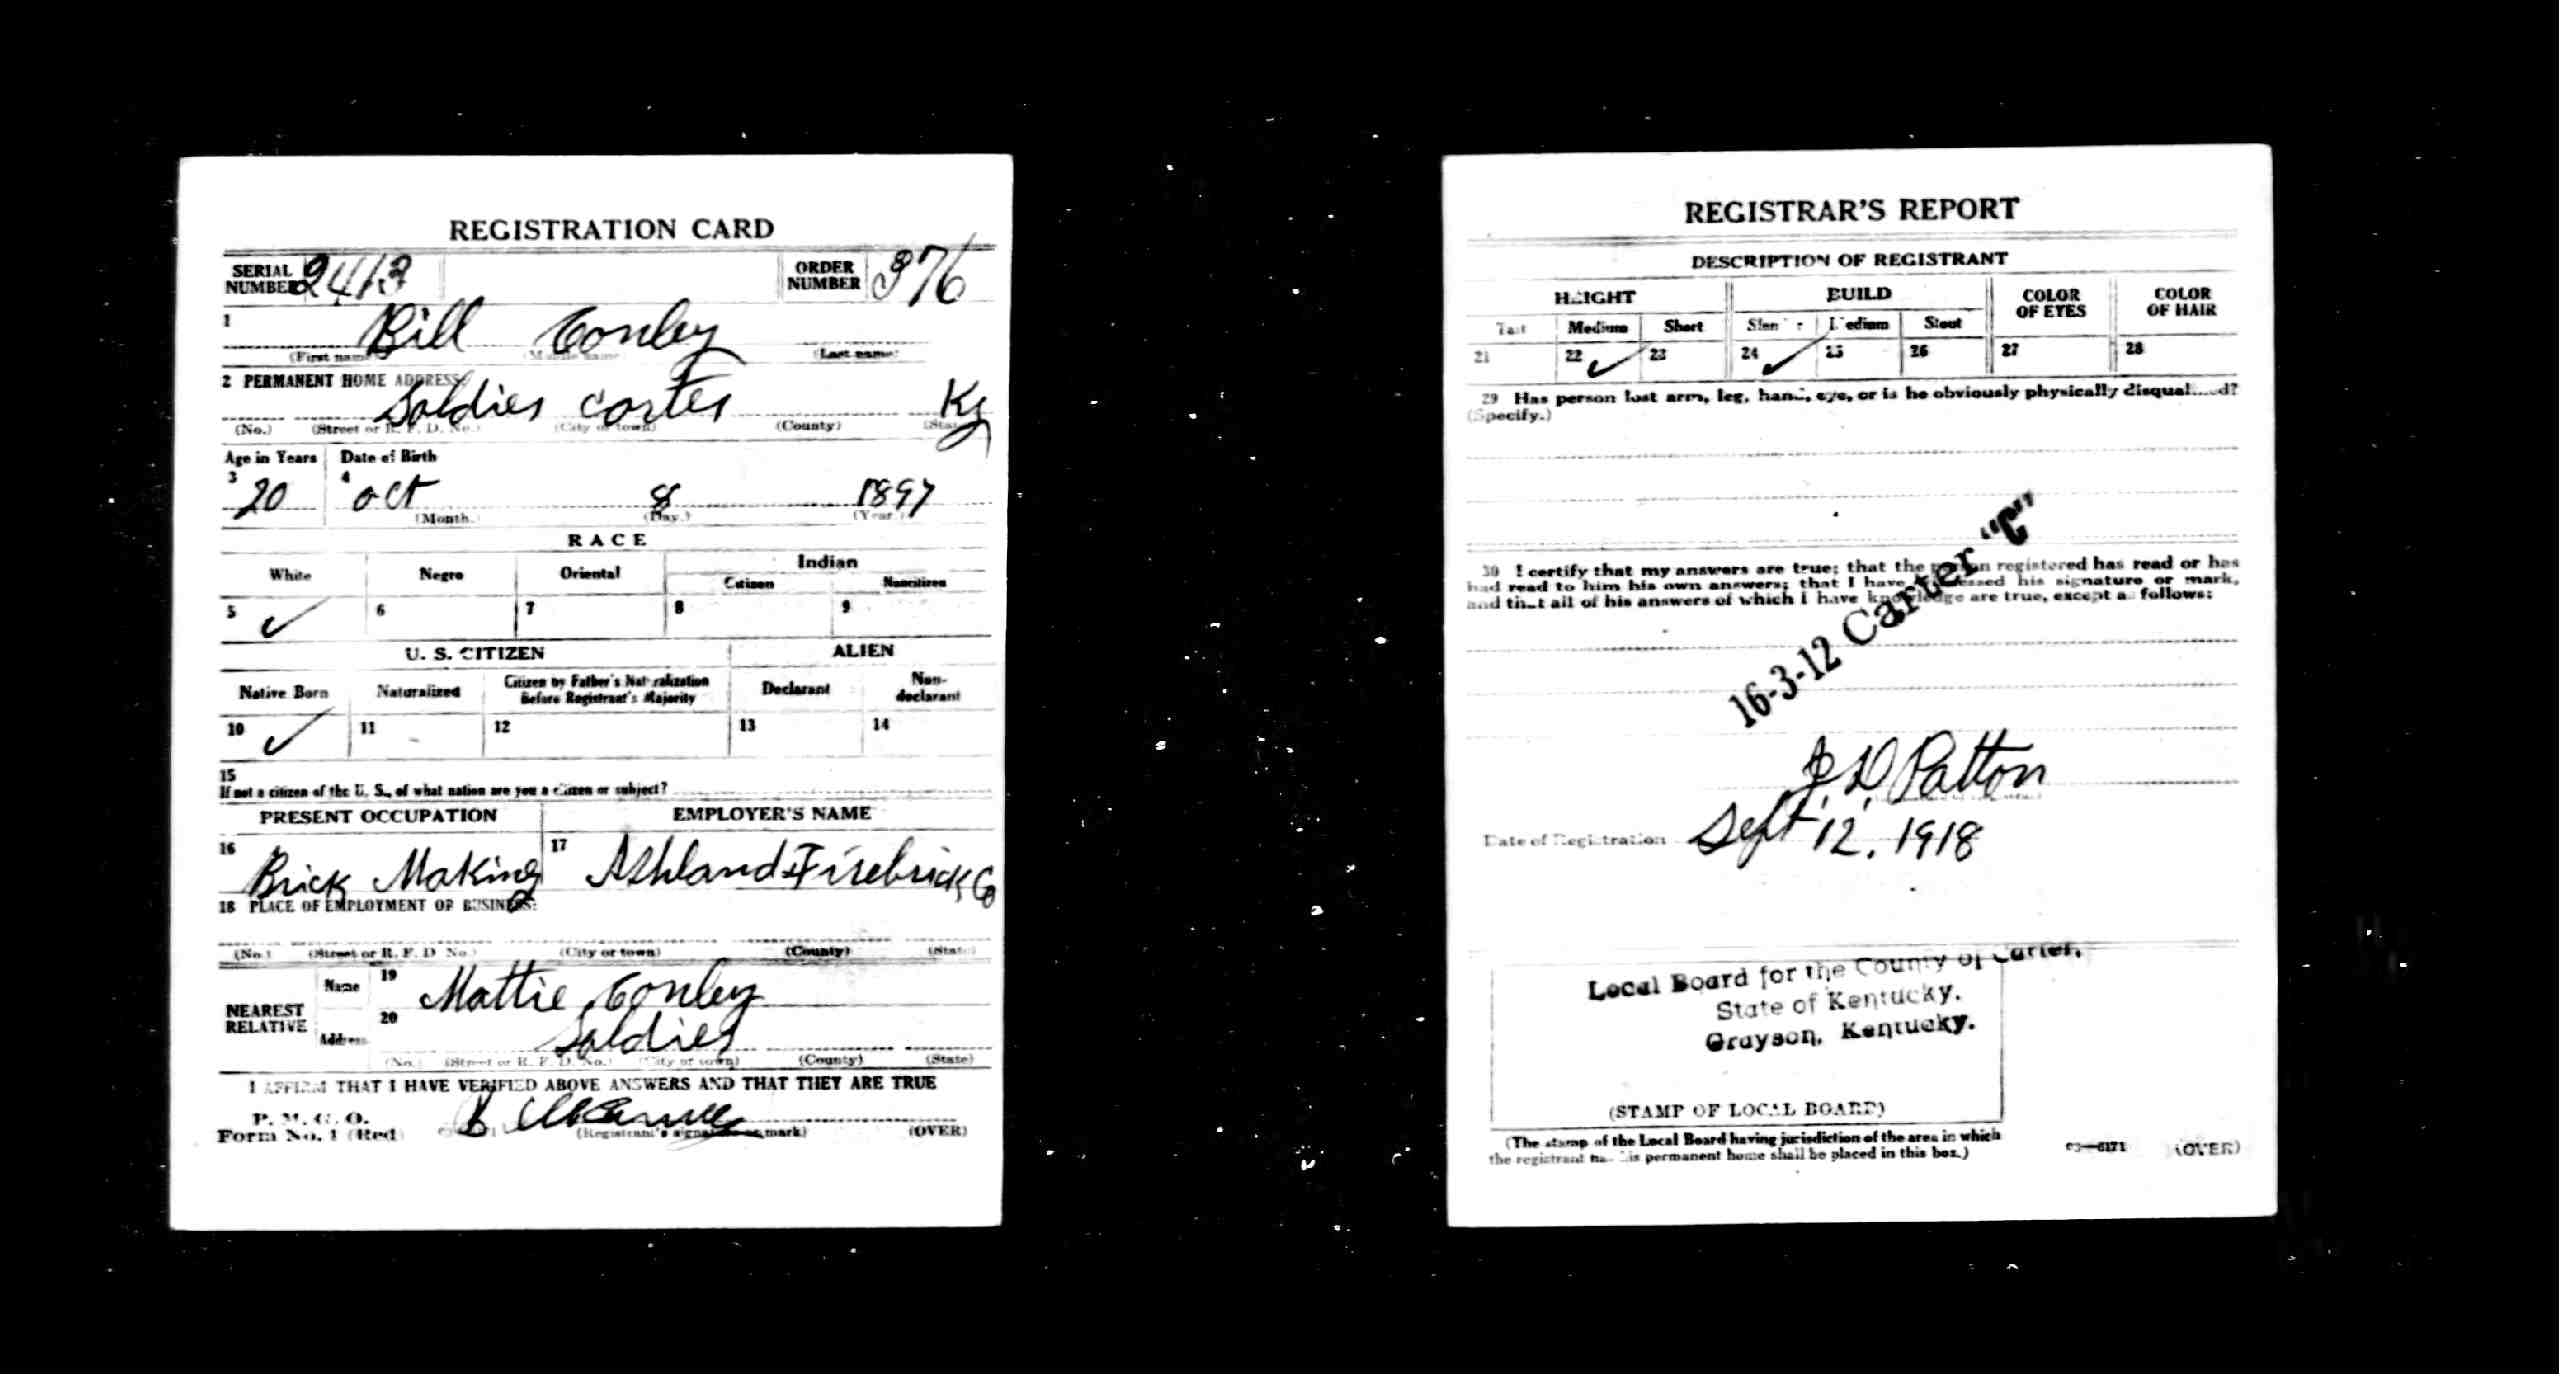 REGISTRATION CARD
SERIAL NUMBER 2413 ORDER NUMBER 376
1 Bill Conley
(First name) (Middle name) (Last name)
2 PERMANENT HOME ADDRESS:
Soldies Carter Ky
(No.) (Street or R. F. D. No.) (City or town) (County) (State)
Age in Years Date of Birth
3 20 4 Oct 8 1897
(Month.) (Day.) (Year.)
RACE
White Negro Oriental Indian
Citizen Noncitizen
5 ✓ 6 7 8 9
U. S. CITIZEN ALIEN
Native Born Naturalized Citizen by Father's Naturalization Before Registrant's Majority Declarant Non-declarant
10 ✓ 11 12 13 14
15
If not a citizen of the U. S., of what nation are you a citizen or subject?
PRESENT OCCUPATION EMPLOYER'S NAME
16 Brick Making 17 Ashland Firebrick Co
18 PLACE OF EMPLOYMENT OR BUSINESS:
(No.) (Street or R. F. D. No.) (City or town) (County) (State)
NEAREST RELATIVE
Name 19 Mattie Conley
Address 20 Soldies
(No.) (Street or R. F. D. No.) (City or town) (County) (State)
I AFFIRM THAT I HAVE VERIFIED ABOVE ANSWERS AND THAT THEY ARE TRUE
P. M. G. O.
Form No. 1 (Red) (Registrant's signature or mark) (OVER)
REGISTRAR'S REPORT
DESCRIPTION OF REGISTRANT
HEIGHT BUILD COLOR OF EYES COLOR OF HAIR
Tall Medium Short Slender Medium Stout
21 22 ✓ 23 24 ✓ 25 26 27 28
29 Has person lost arm, leg, hand, eye, or is he obviously physically disqualified?
(Specify.)
30 I certify that my answers are true; that the person registered has read or has
had read to him his own answers; that I have witnessed his signature or mark,
and that all of his answers of which I have knowledge are true, except as follows:
16-3-12 Carter "C"
J. D. Patton
Date of Registration Sept 12, 1918
Local Board for the County of Carter,
State of Kentucky.
Grayson, Kentucky.
(STAMP OF LOCAL BOARD)
(The stamp of the Local Board having jurisdiction of the area in which
the registrant has his permanent home shall be placed in this box.)
03—6171 (OVER)